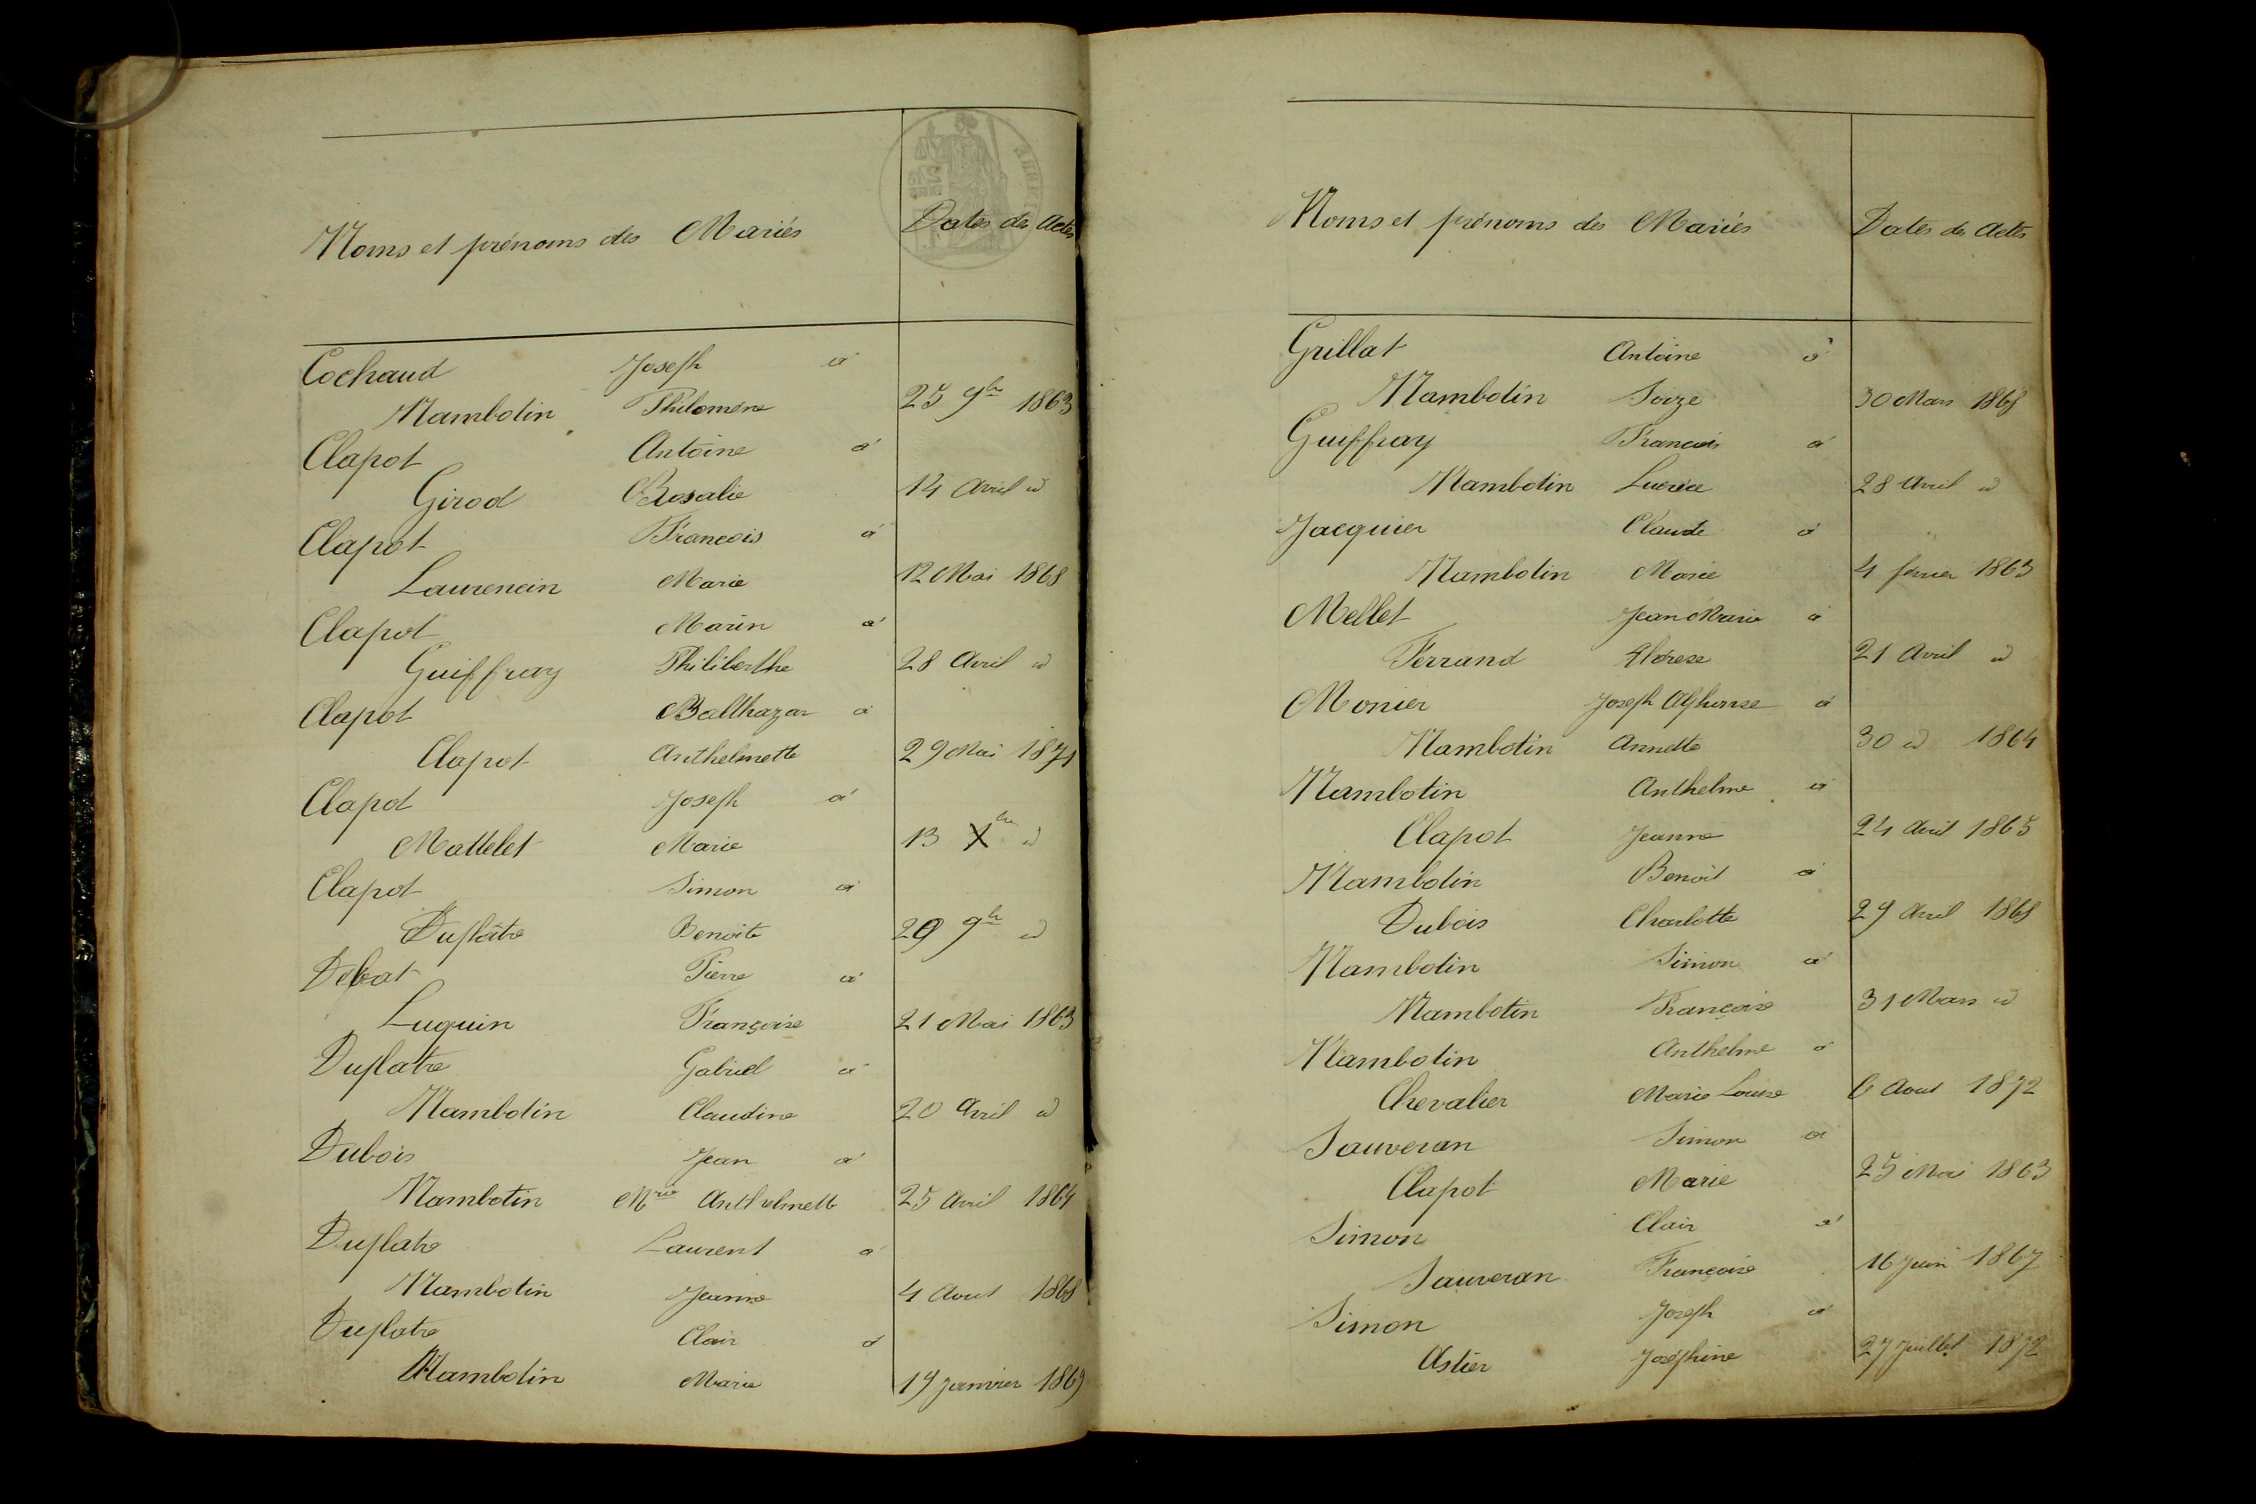 Noms et prénoms des Mariés Dates des Actes
Cochaud Joseph à
Mambotin Philomène 25 9bre 1863
Clapot Antoine à
Girod Rosalie 14 Avril id
Clapot François à
Laurencin Marie 12 Mai 1868
Clapot Marin à
Guiffray Philiberthe 28 Avril id
Clapot Balthazar à
Clapot Anthelmette 29 Mai 1871
Clapot Joseph à
Mattelet Marie 13 Xbre id
Clapot Simon à
Duplâtre Benoite 29 9bre id
Debat Pierre à
Luquin Françoise 21 Mai 1863
Duplatre Gabriel à
Mambotin Claudine 20 Avril id
Dubois Jean à
Mambotin Mrie Anthelmette 25 Avril 1864
Duplatre Laurent à
Mambotin Jeanne 4 Aout 1868
Duplatre Clair à
Mambotin Marie 19 Janvier 1869
Noms et prénoms des Mariés Dates des Actes
Grillat Antoine à
Mambotin 30 Mars 1868
Guiffray François à
Mambotin Lucrèce 28 Avril id
Jacquier Claude à
Mambotin Marie 4 février 1863
Mellet Jean Marie à
Ferrand Thérese 21 Avril id
Monier Joseph Alphonse à
Mambotin Annette 30 id 1864
Mambotin Anthelme à
Clapot Jeanne 24 Avril 1865
Mambotin Benoit à
Dubois Charlotte 29 Avril 1868
Mambotin Simon à
Mambotin Françoise 31 Mars id
Mambotin Anthelme à
Chevalier Marie Louise 6 Aout 1872
Sauveran Simon à
Clapot Marie 25 Mai 1863
Simon Clair à
Sauveran Françoise 16 Juin 1867
Simon Joseph à
Astier Joséphine 27 Juillet 1872